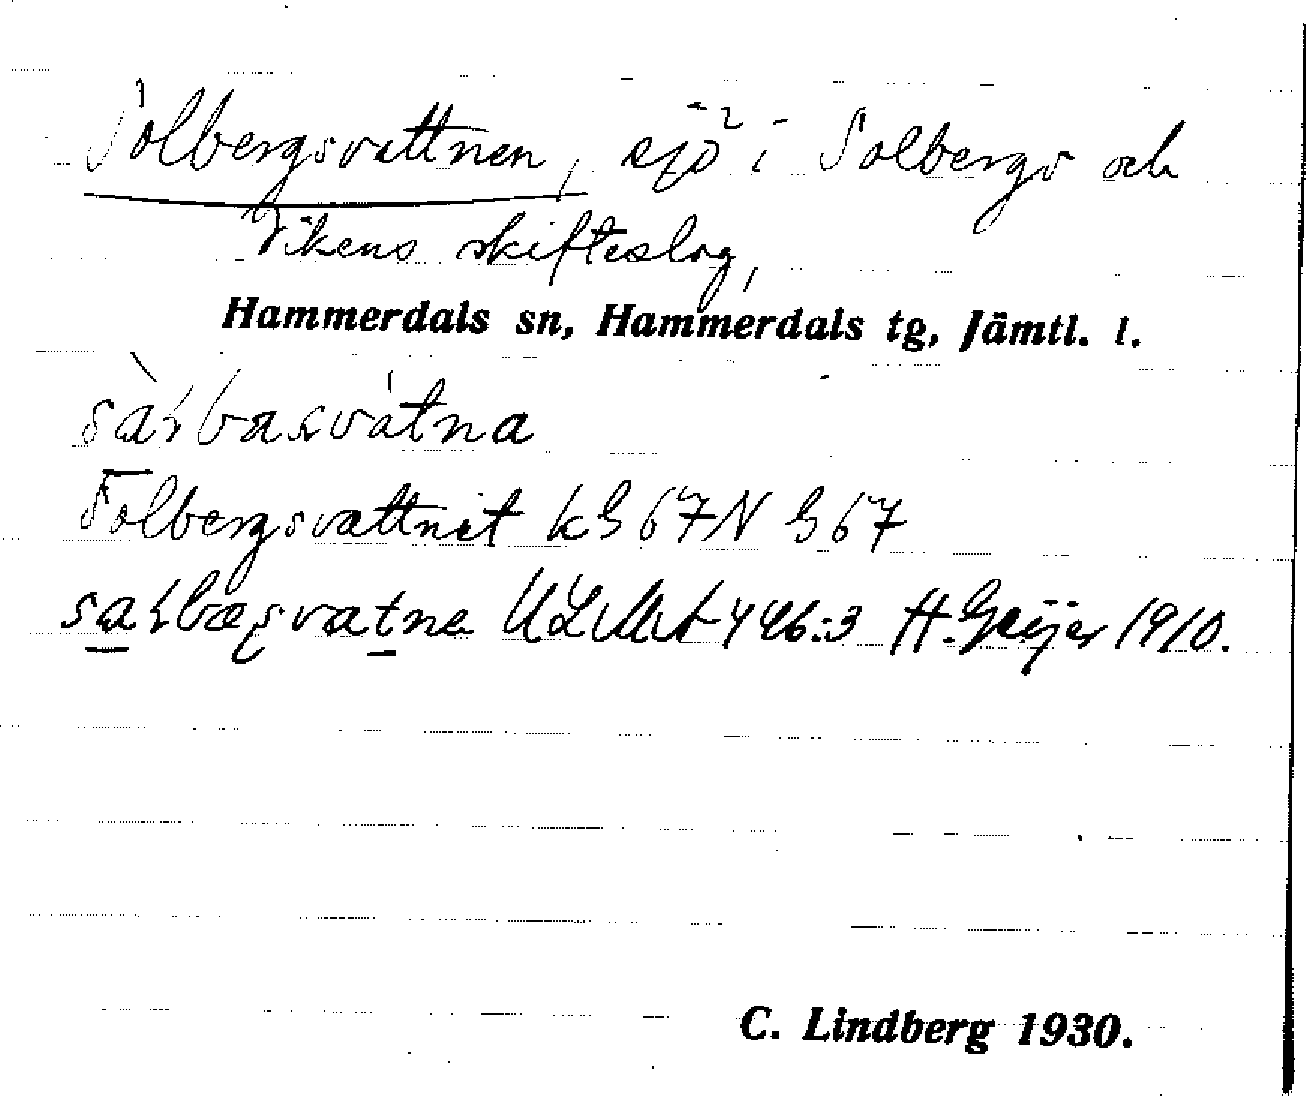 Solbergsvattnen, sjö i Solbergs och
Vikens skifteslag,
Hammerdals sn, Hammerdals tg, Jämtl. l.
Solbergsvattnet kG 67 N G 67
ULMA 446:3 H. Geijer 1910.
C. Lindberg 1930.